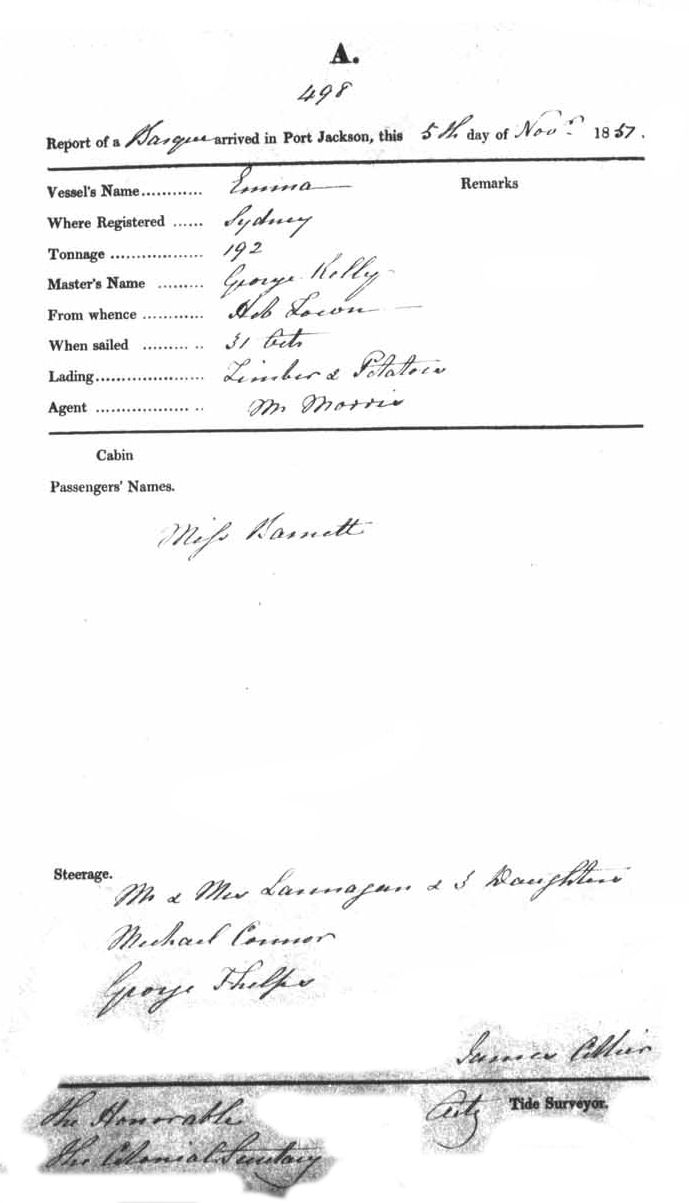 A.
498
Report of a Barque arrived in Port Jackson, this 5th day of Novr 1857.
Vessel's Name............ Emma Remarks
Where Registered ...... Sydney
Tonnage .................. 192
Master's Name ......... George Kelly
From whence ............ Hob Town
When sailed ......... .. 31 Octr
Lading..................... Timber & Potatoes
Agent .................. .. Mr Morris
Cabin
Passengers' Names.
Miss Barnett
Steerage.
Mr & Mrs Lannagan & 3 Daughters
Michael Connor
George Phelps
James Collier
Actg Tide Surveyor.
The Honorable
The Colonial Secretary